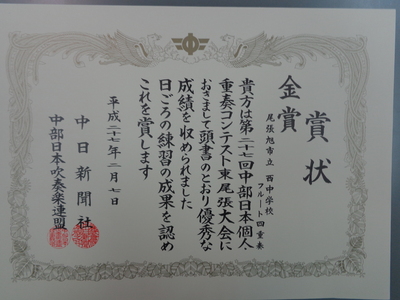 賞状
金賞
尾張旭市立 西中学校
フルート四重奏
貴方は第二十七回中部日本個人
重奏コンテスト東尾張大会に
おさまして頭書のとおり優秀な
成績を収められました
日ごろの練習の成果を認め
これを賞します
平成二十七年二月七日
中日新聞社
中部日本吹奏楽連盟